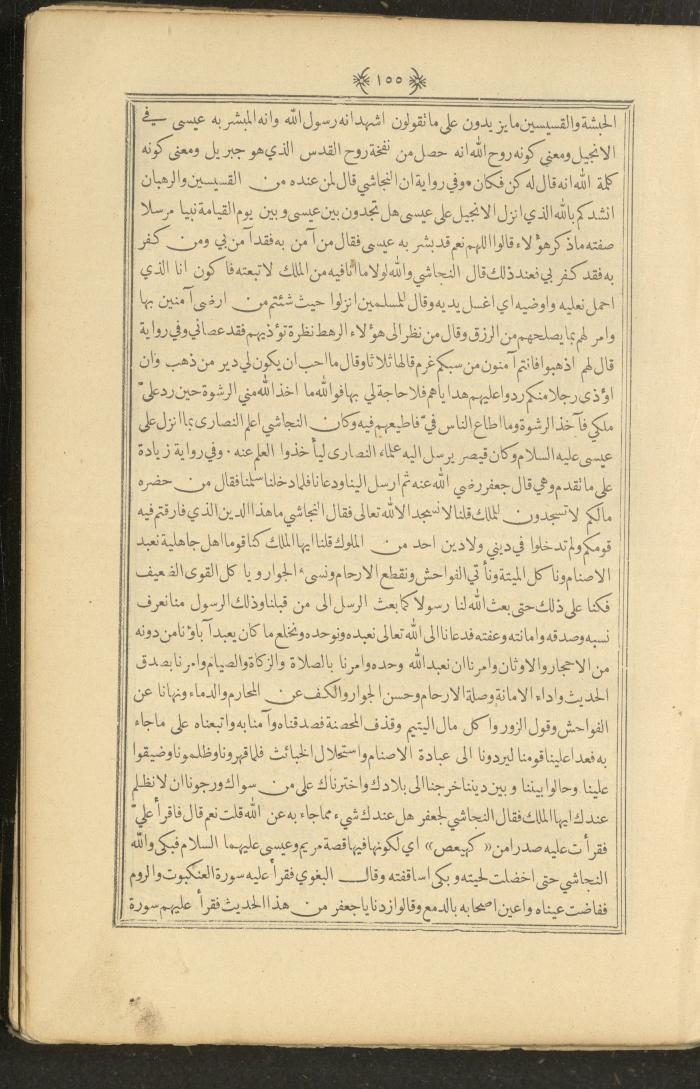 ١٥٥
الحبشة والقسيسين ما يزيدون على ما تقولون اشهد انه رسول الله وانه المبشر به عيسى في
الانجيل ومعنى كونه روح الله انه حصل من نفخة روح القدس الذي هو جبريل ومعنى كونه
كلمة الله انه قال له كن فكان • وفي رواية ان النجاشي قال لمن عنده من القسيسين والرهبان
انشدكم بالله الذي انزل الانجيل على عيسى هل تجدون بين عيسى وبين يوم القيامة نبيا مرسلا
صفته ما ذكر هؤلاء قالوا اللهم نعم قد بشر به عيسى فقال من آمن به فقد آمن بي ومن كفر
به فقد كفر بي فعند ذلك قال النجاشي والله لولا ما انا فيه من الملك لاتبعته فاكون انا الذي
احمل نعليه واوضيه اي اغسل يديه وقال للمسلمين انزلوا حيث شئتم من ارضى آمنين بها
وامر لهم بما يصلحهم من الرزق وقال من نظر الى هؤلاء الرهط نظرة تؤذيهم فقد عصاني وفي رواية
قال لهم اذهبوا فانتم آمنون من سبكم غرم قالها ثلاثا وقال ما احب ان يكون لي دير من ذهب وان
اوذي رجلا منكم ردوا عليهم هداياهم فلا حاجة لي بها فوالله ما اخذ الله مني الرشوة حين رد عليّ
ملكي فآخذ الرشوة وما اطاع الناس فيّ فاطيعهم فيه وكان النجاشي اعلم النصارى بما انزل على
عيسى عليه السلام وكان قيصر يرسل اليه علماء النصارى ليأخذوا العلم عنه . وفي رواية زيادة
على ما تقدم وهي قال جعفر رضي الله عنه ثم ارسل الينا ودعانا فلما دخلنا سلمنا فقال من حضره
مالكم لا تسجدون للملك قلنا لا نسجد الا لله تعالى فقال النجاشي ما هذا الدين الذي فارقتم فيه
قومكم ولم تدخلوا في ديني ولا دين احد من الملوك قلنا ايها الملك كنا قوما اهل جاهلية نعبد
الاصنام ونأكل الميتة ونأتي الفواحش ونقطع الارحام ونسيء الجوار ويأكل القوى الضعيف
فكنا على ذلك حتى بعث الله لنا رسولا كما بعث الرسل الى من قبلنا وذلك الرسول منا نعرف
نسبه وصدقه وامانته وعفته فدعانا الى الله تعالى نعبده ونوحده ونخلع ما كان يعبد آباؤنا من دونه
من الاحجار والاوثان وامرنا ان نعبد الله وحده وامرنا بالصلاة والزكاة والصيام وامرنا بصدق
الحديث واداء الامانة وصلة الارحام وحسن الجوار والكف عن المحارم والدماء ونهانا عن
الفواحش وقول الزور واكل مال اليتيم وقذف المحصنة فصدقناه وآمنا به واتبعناه على ما جاء
به فعدا علينا قومنا ليردونا الى عبادة الاصنام واستحلال الخبائث فلما قهرونا وظلمونا وضيقوا
علينا وحالوا بيننا وبين ديننا خرجنا الى بلادك واخترناك على من سواك ورجونا ان لا نظلم
عندك ايها الملك فقال النجاشي لجعفر هل عندك شيء مما جاء به عن الله قلت نعم قال فاقرأ عليّ
فقرأت عليه صدرا من « كهيعص » اي لكونها فيها قصة مريم وعيسى عليهما السلام فبكى والله
النجاشي حتى اخضلت لحيته وبكى اساقفته وقال البغوي فقرأ عليه سورة العنكبوت والروم
ففاضت عيناه واعين اصحابه بالدمع وقالوا زدنا يا جعفر من هذا الحديث فقرأ عليهم سورة